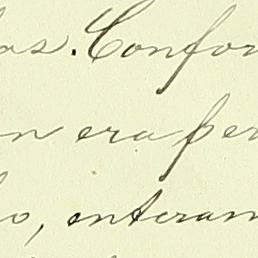 as. Confor
n era per
o, enteram